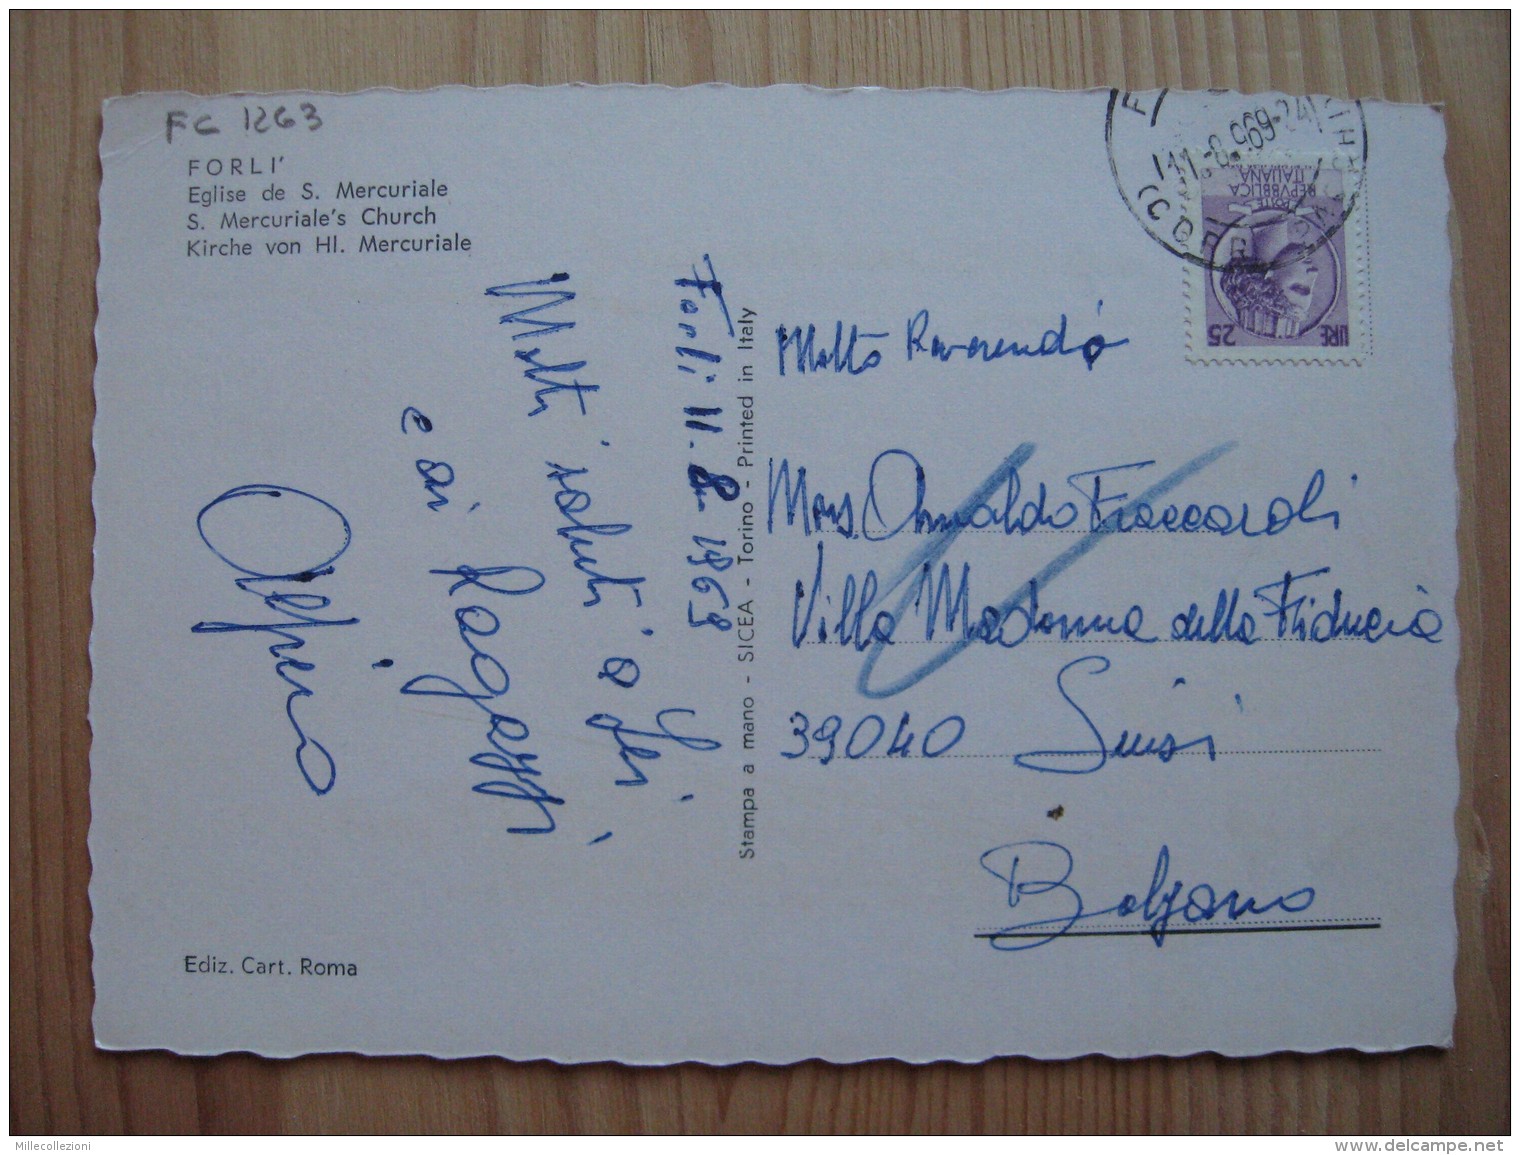 FC 1263
FORLI'
Eglise de S. Mercuriale
S. Mercuriale's Church
Kirche von Hl. Mercuriale
Forlì 11-8-1969
Molti saluti a Lei
e ai Ragazzi
Ediz. Cart. Roma
Stampa a mano - SICEA - Torino - Printed in Italy
11.-8.969-24
POSTE
REPVBBLICA
ITALIANA
LIRE 25
Molto Reverendo
Mons. Osvaldo Fraccaroli
Villa Madonna della Fiducia
39040 Siusi
Bolzano
Millecollezioni
www.delcampe.net